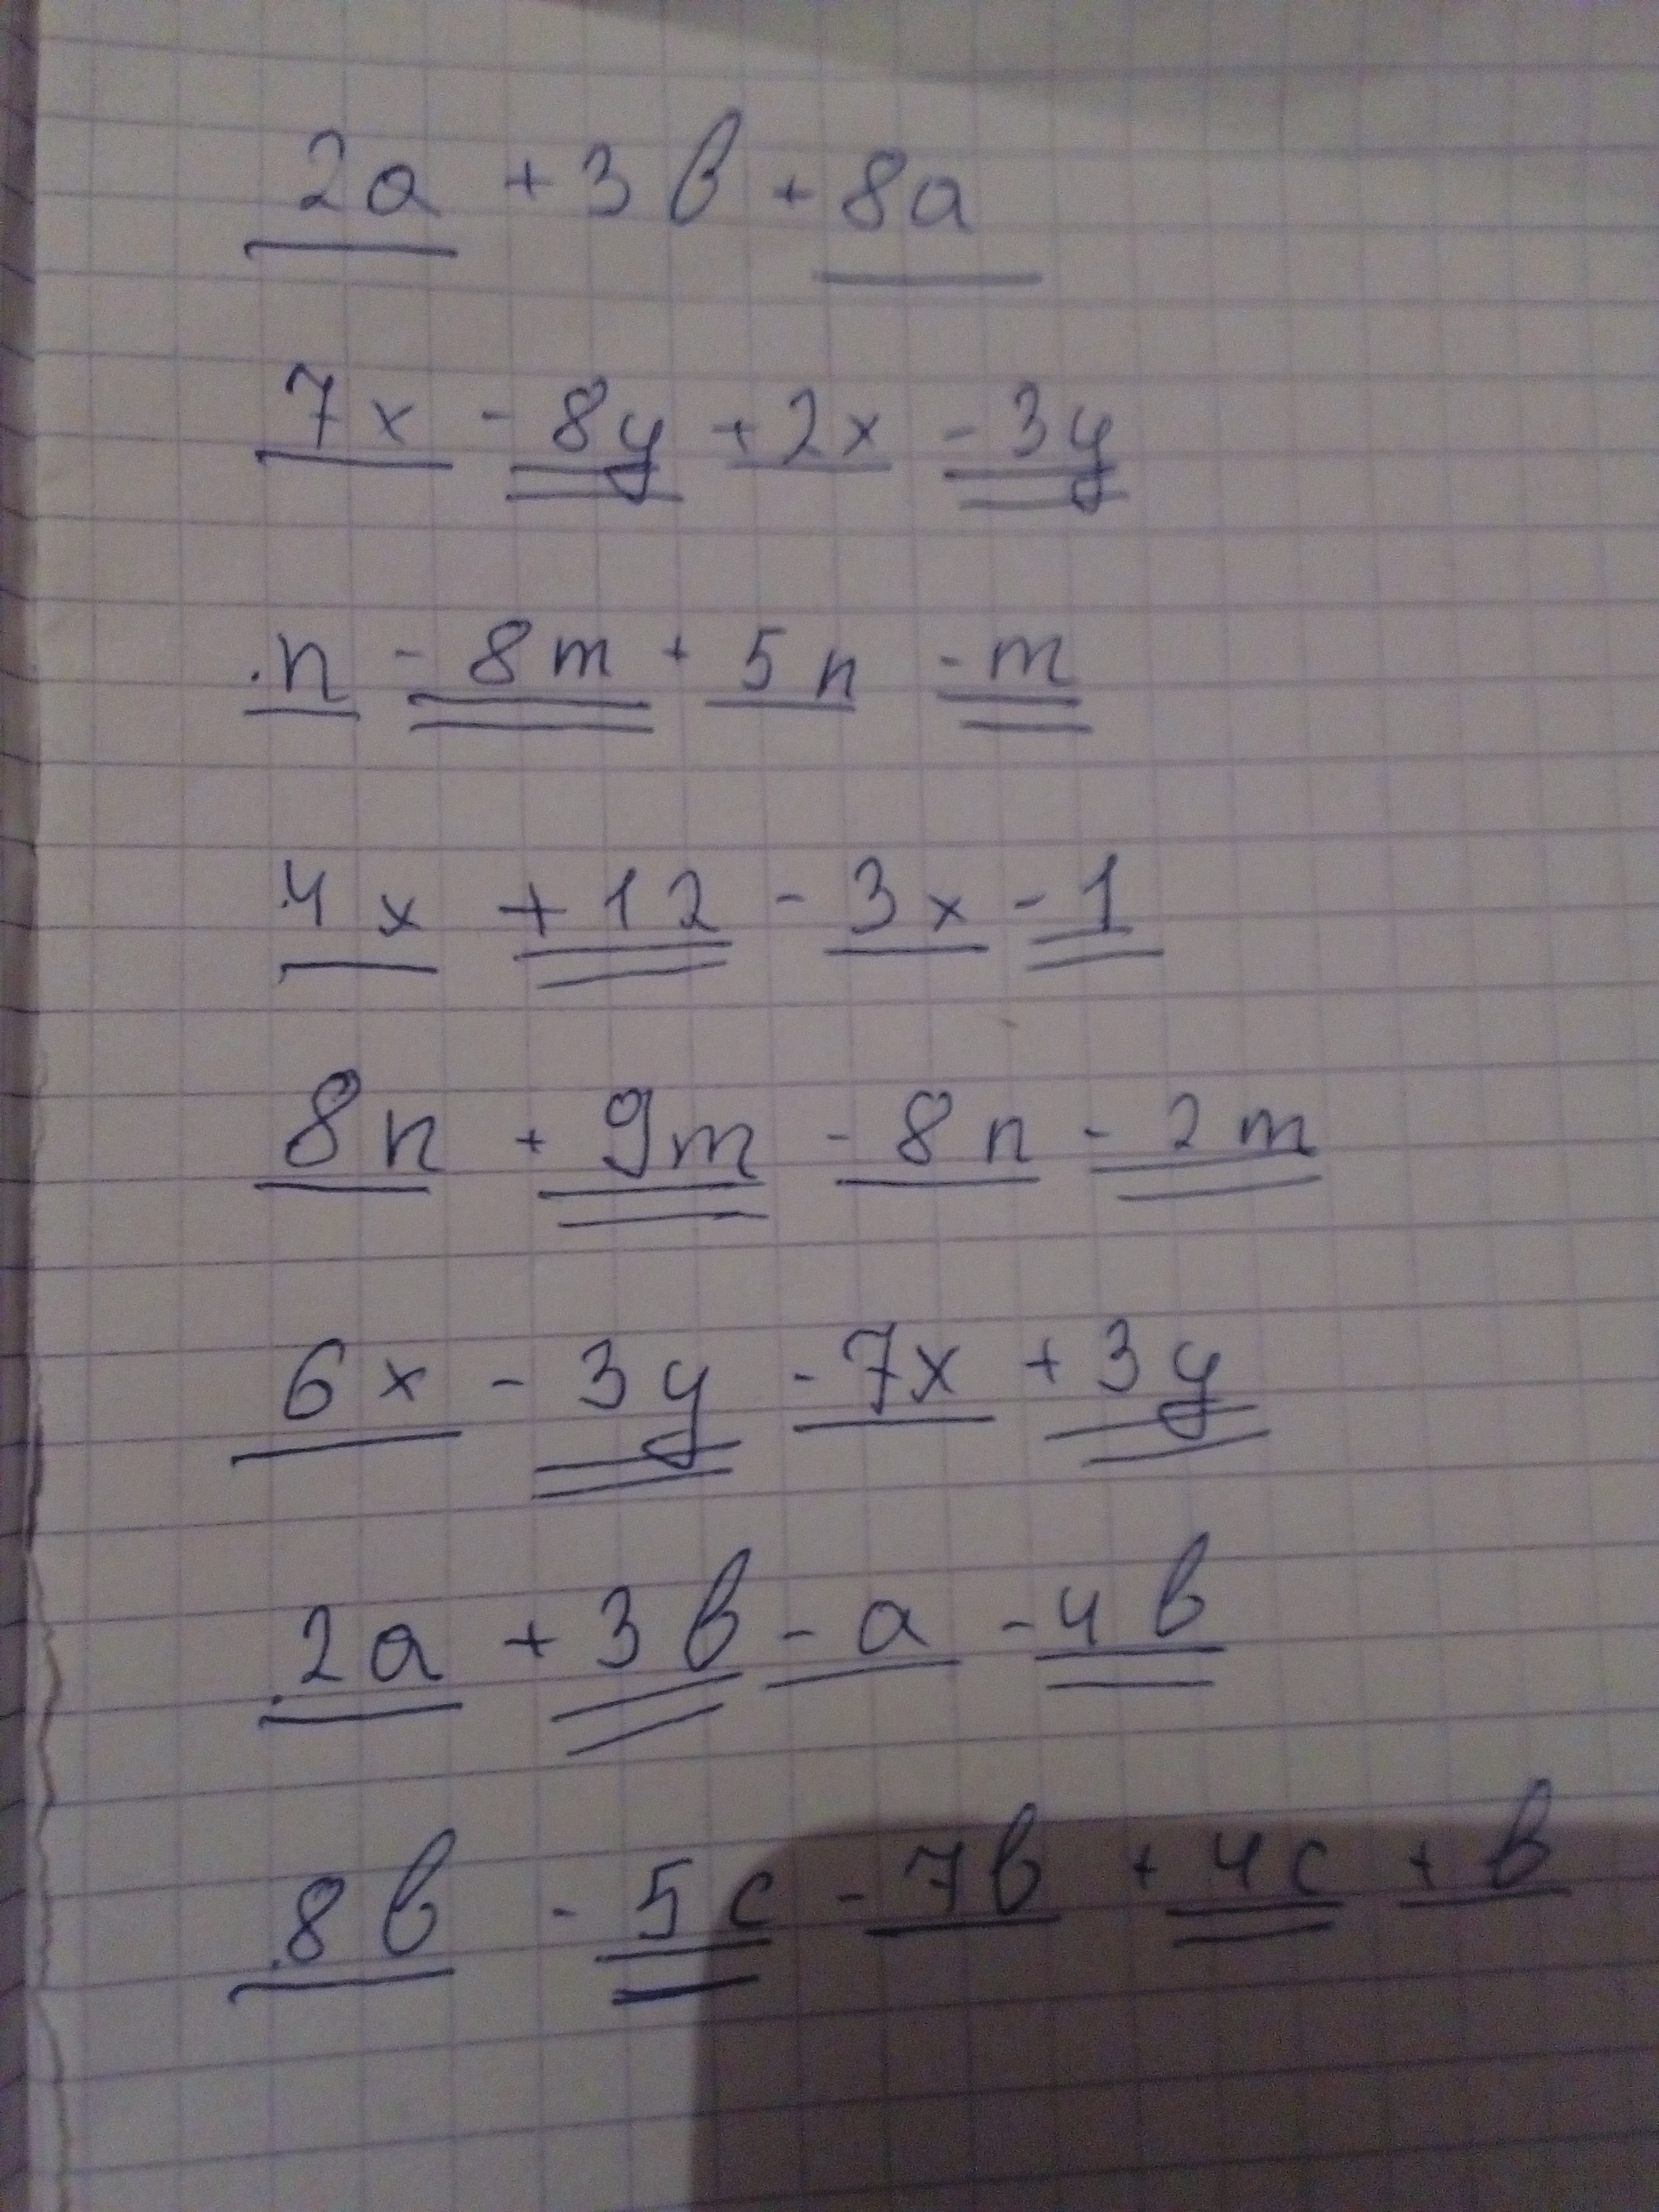 2a + 3b + 8a
7x - 8y + 2x - 3y
n - 8m + 5n - m
4x + 12 - 3x - 1
8n + 9m - 8n - 2m
6x - 3y - 7x + 3y
2a + 3b - a - 4b
8b - 5c - 7b + 4c + b